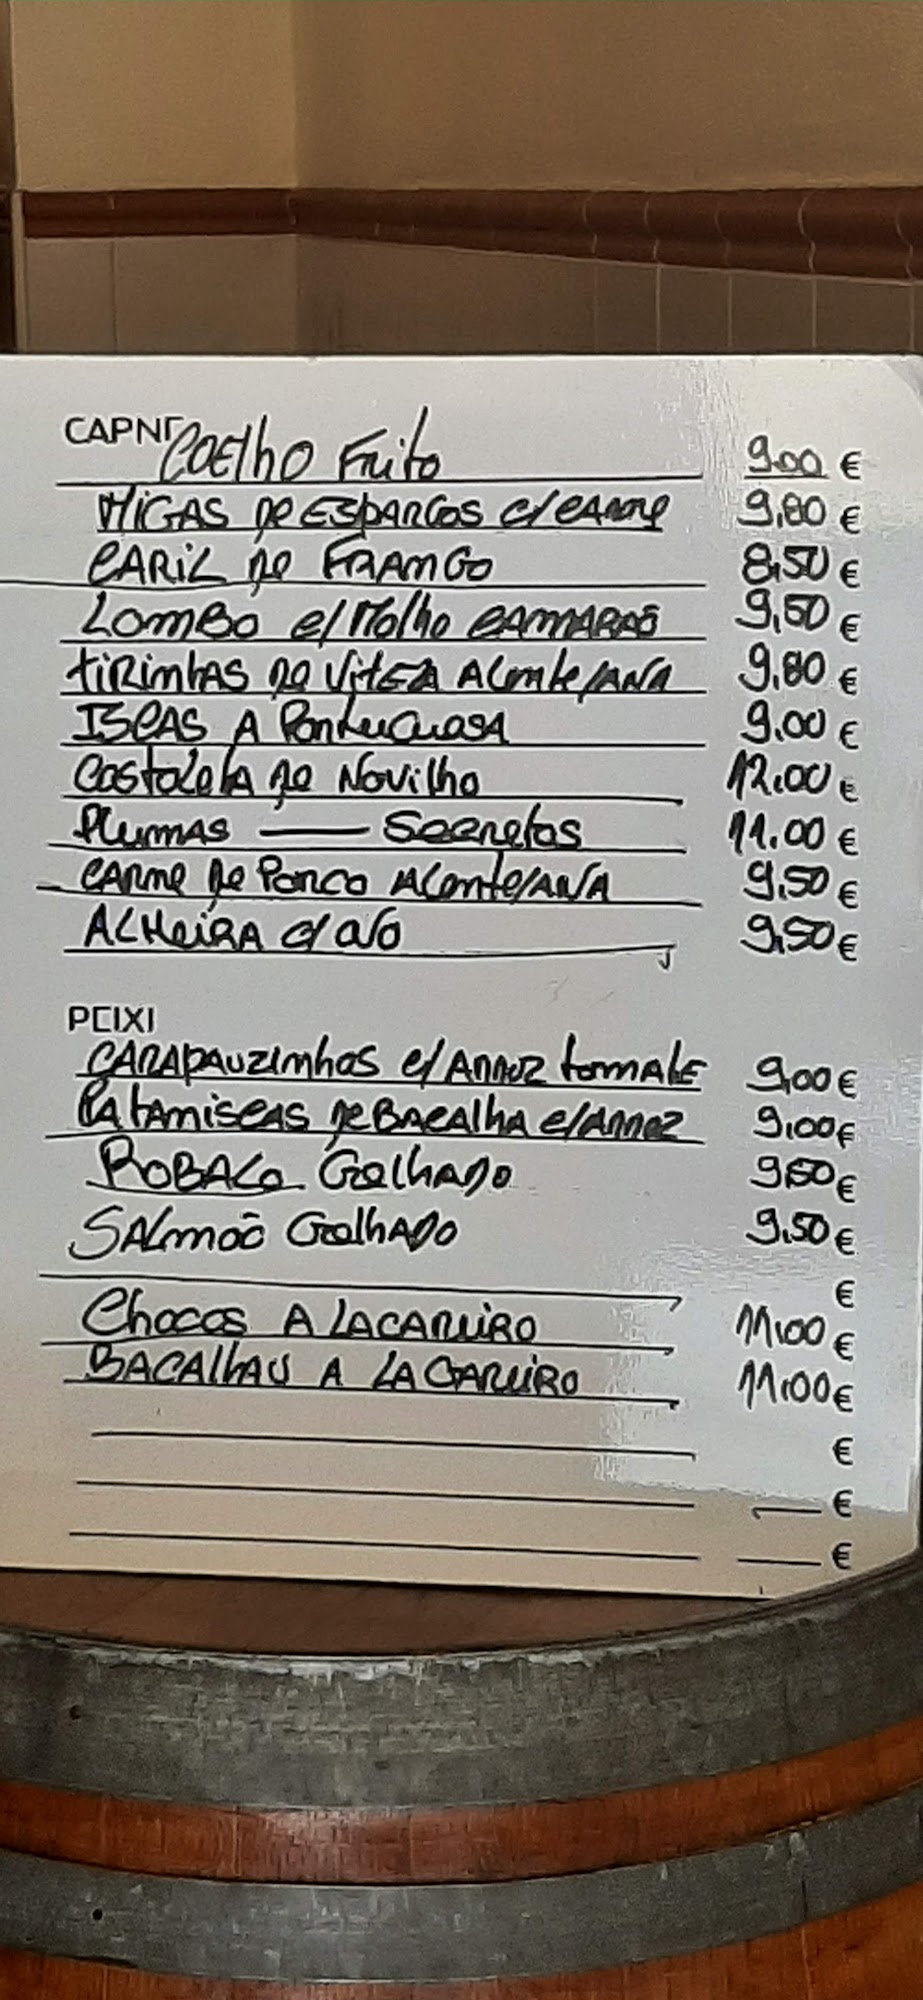 CARNE
Coelho Frito 9.00 €
Migas de Espargos c/carne 9,80 €
Caril de Frango 8,50 €
Lombo c/Molho camarão 9,50 €
tirinhas de Vitela Alentejana 9,80 €
Iscas A Portuguesa 9.00 €
Costoleta de Novilho 12.00 €
Plumas — Secretos 11.00 €
Carne de Porco Alentejana 9,50 €
Alheira c/ ovo 9,50 €
PEIXE
Carapauzinhos c/Arroz tomate 9,00 €
Pataniscas de Bacalha c/arroz 9,00 €
Robalo Grelhado 9,50 €
Salmão Grelhado 9,50 €
€
Chocos A Lagareiro 11,00 €
Bacalhau A Lagareiro 11,00 €
€
€
€